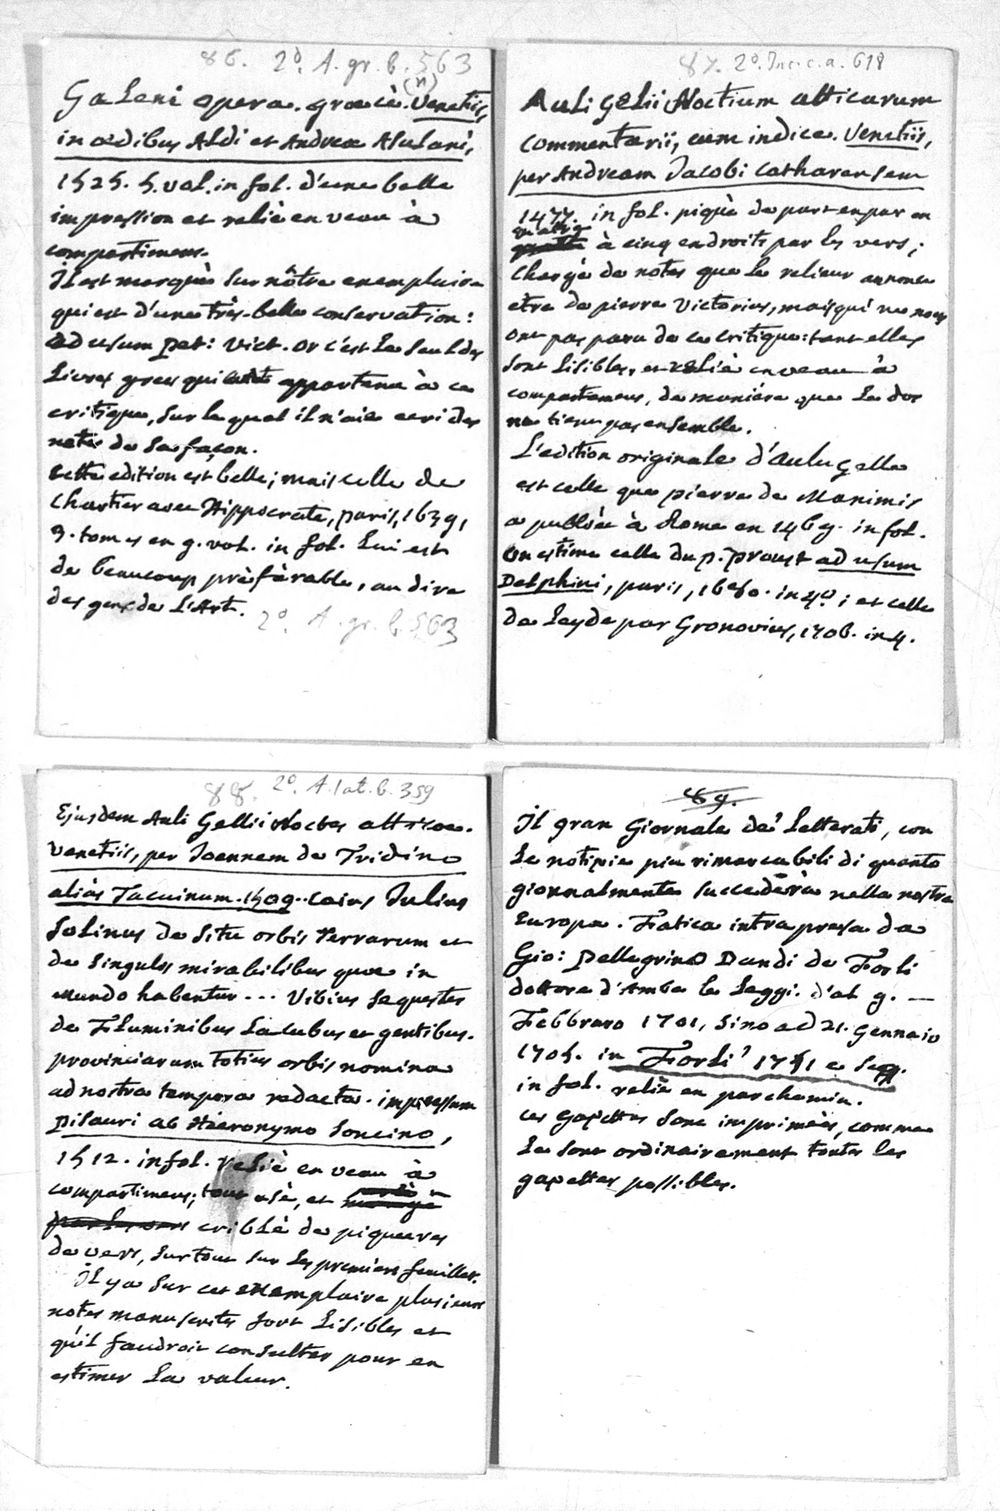 86. 2º. A. gr. b. 563
(n)
Galeni opera. græcè. Venetiis,
in ædibus Aldi et Andreæ Asulani,
1525. 5. vol. in fol. d'une belle
impression et relié en veau à
compartimens.
Il est marqué sur nôtre exemplaire
qui est d'une très-belle conservation:
ad usum Pet: Vict. or c'est le seul des
Livres grecs qui ait appartenu à ce
critique, sur lequel il n'aie ecri des
notes de sa façon.
cette edition est belle; mais celle de
Chartier avec Hippocrate, paris, 1639,
9. tomes en 9. vol. in fol. Lui est
de beaucoup préférable, au dire
des gens de L'Art.
2º. A. gr. b. 563
87. 2º. Inc. c. a. 618
Auli Gelii Noctium atticarum
commentarii, cum indice. Venetiis,
per Andream Jacobi Catharensem
1477. in fol. piqué de part en par en
quatre
à cinq endroits par les vers;
chargé de notes que le relieur annonce
etre de pierre Victorius, mais qui ne nous
ont pas paru de ce critique: tant elles
sont Lisibles, et relié en veau à
compartimens, de maniére que Le dos
ne tient pas ensemble.
L'edition originale d'aulugelle
est celle que pierre de Maximis
a publiée à Rome en 1469. in fol.
On estime celle du p. proust ad usum
Delphini, paris, 1680. in 4º; et celle
de Leyde par Gronovius, 1706. in 4.
88. 2º. A. lat. b. 359
Ejusdem Auli Gellii Noctes atticæ.
Venetiis, per Joannem de Tridino
aliàs Tacuinum. 1509. Caius Julius
Solinus de Situ orbis Terrarum et
de Singulis mirabilibus quæ in
Mundo habentur ... Vibius Sequester
de Fluminibus Lacubus et gentibus.
provinciarum totius orbis nomina
ad nostra tempora redacta. impressum
Pisauri ab Hieronymo Soncino,
1512. in fol. relié en veau à
compartimens; tout usé, et
criblé de piqueures
de vers, surtout sur les premiers feuillets.
Il y a sur cet exemplaire plusieurs
notes manuscrites fort Lisibles et
qu'il faudroit consulter pour en
estimer La valeur.
89.
Il gran Giornale de' Letterati, con
Le notizie piu rimarcabili di quanto
giornalmente succederà nella nostra
Europa. Fatica intrapresa da
Gio: Pellegrino Dandi de Forli
dottore d'Ambe le Leggi. d'al 9. —
Febbraro 1701, sino ad 21. Gennaio
1705. in Forli' 1701 e seg.
in fol. relié en parchemin.
ces gazettes sont imprimées, comme
Le sont ordinairement toutes les
gazettes possibles.